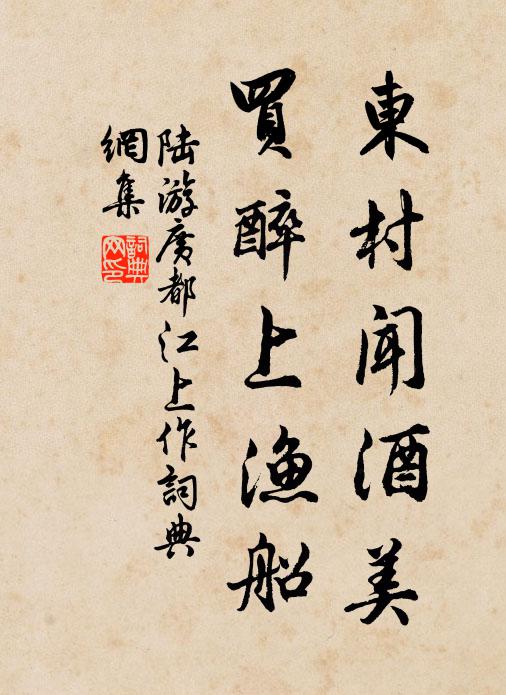 東村闻酒美
買醉上渔船
陆游廣都江上作詞典
網集
詞典网印